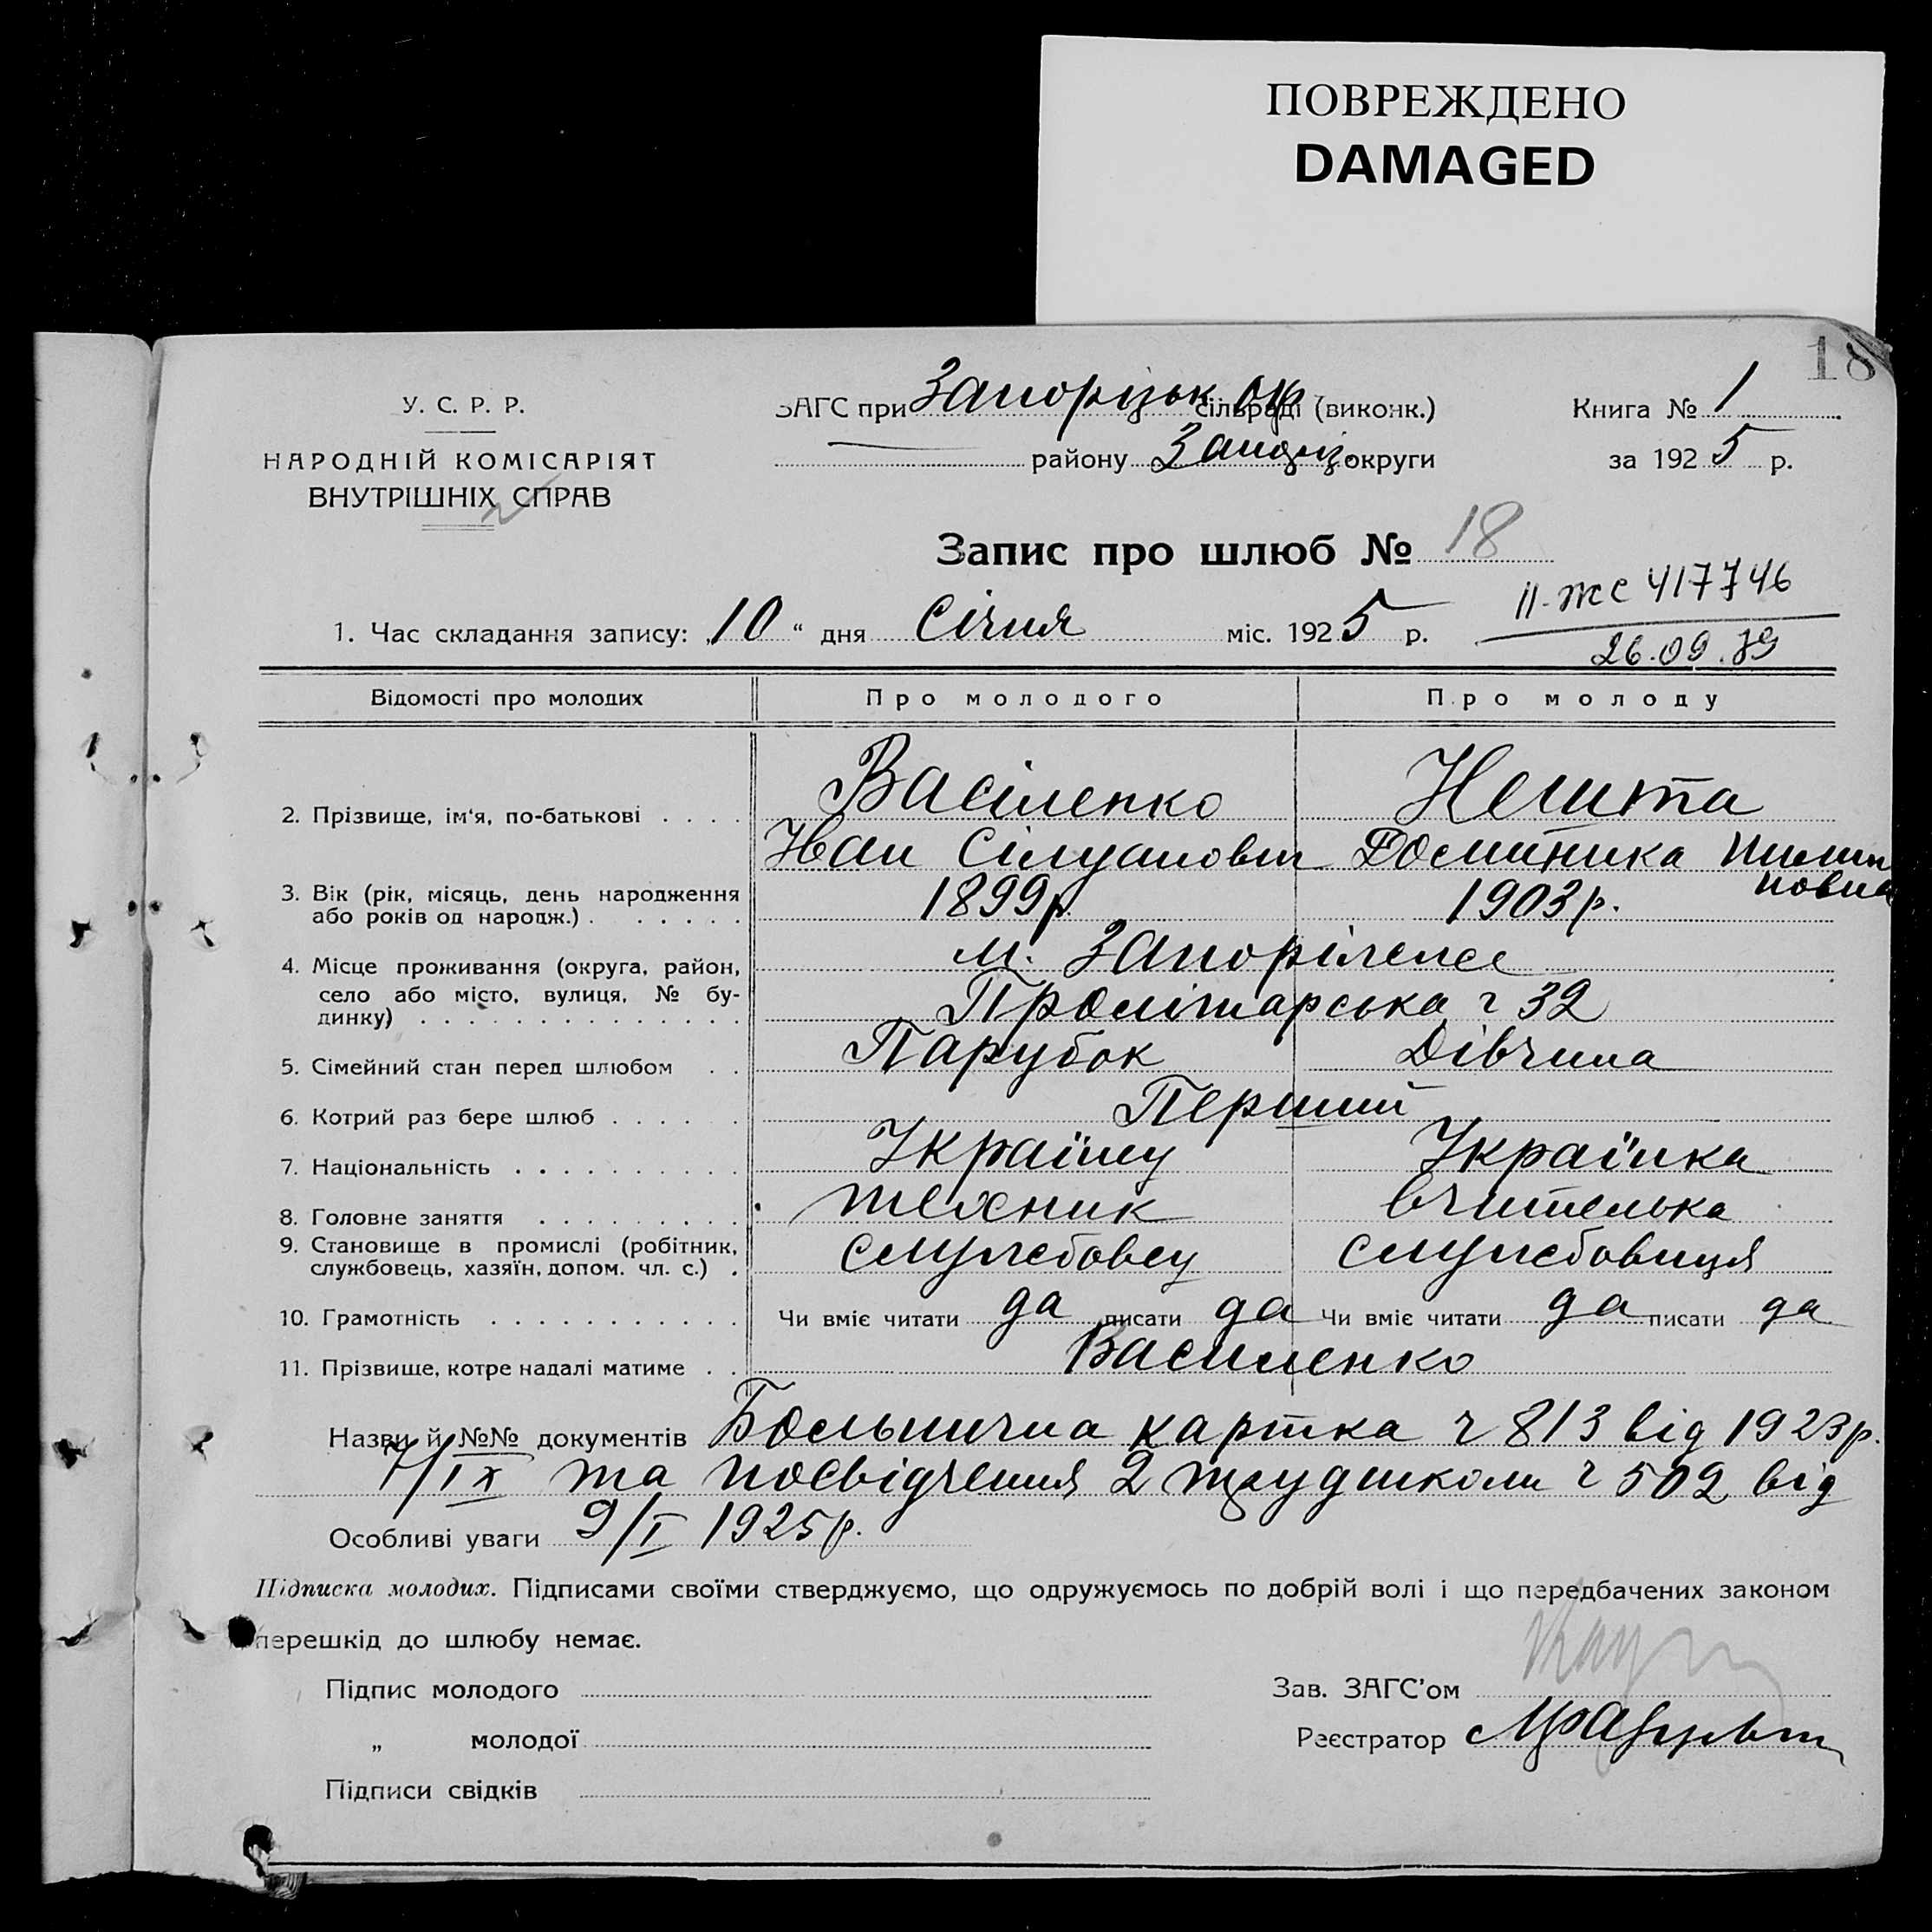 ПОВРЕЖДЕНО
DAMAGED
18
У. С. Р. Р.
НАРОДНІЙ КОМІСАРІЯТ
ВНУТРІШНІХ СПРАВ
ЗАГС при Запорізьк. Окр. сільраді (виконк.)
району Запоріз. округи
Книга № 1
за 1925 р.
Запис про шлюб № 18
II-ЖС 417746
26.09.79
1. Час складання запису: „10“ дня Січня міс. 1925 р.
Відомості про молодих Про молодого Про молоду
2. Прізвище, ім‘я, по-батькові . . . . Василенко Нешта
Иван Сілуанович Доминика Пилип
повна
3. Вік (рік, місяць, день народження 1899р. 1903р.
або років од народж.) . . . . . .
4. Місце проживання (округа, район, м. Запоріжжє
село або місто, вулиця, № бу- Пролітарська ч 32
динку) . . . . . . . . . . . . . .
5. Сімейний стан перед шлюбом . . Парубок Дівчина
6. Котрий раз бере шлюб . . . . . . Перший
7. Національність . . . . . . . . . . Українц Українка
8. Головне заняття . . . . . . . . . техник вчителька
9. Становище в промислі (робітник, службовец службовиця
службовець, хазяїн, допом. чл. с.) .
10. Грамотність . . . . . . . . . . . Чи вміє читати да писати да Чи вміє читати да писати да
11. Прізвище, котре надалі матиме . . Василенко
Назви й №№ документів Больнична картка ч 813 від 1923р.
7/IX та посвідчення 2 трудшколи ч 502 від
Особливі уваги 9/I 1925р.
Підписка молодих. Підписами своїми стверджуємо, що одружуємось по добрій волі і що передбачених законом
перешкід до шлюбу немає.
Підпис молодого
Зав. ЗАГС’ом
„ молодої
Реєстратор
Підписи свідків